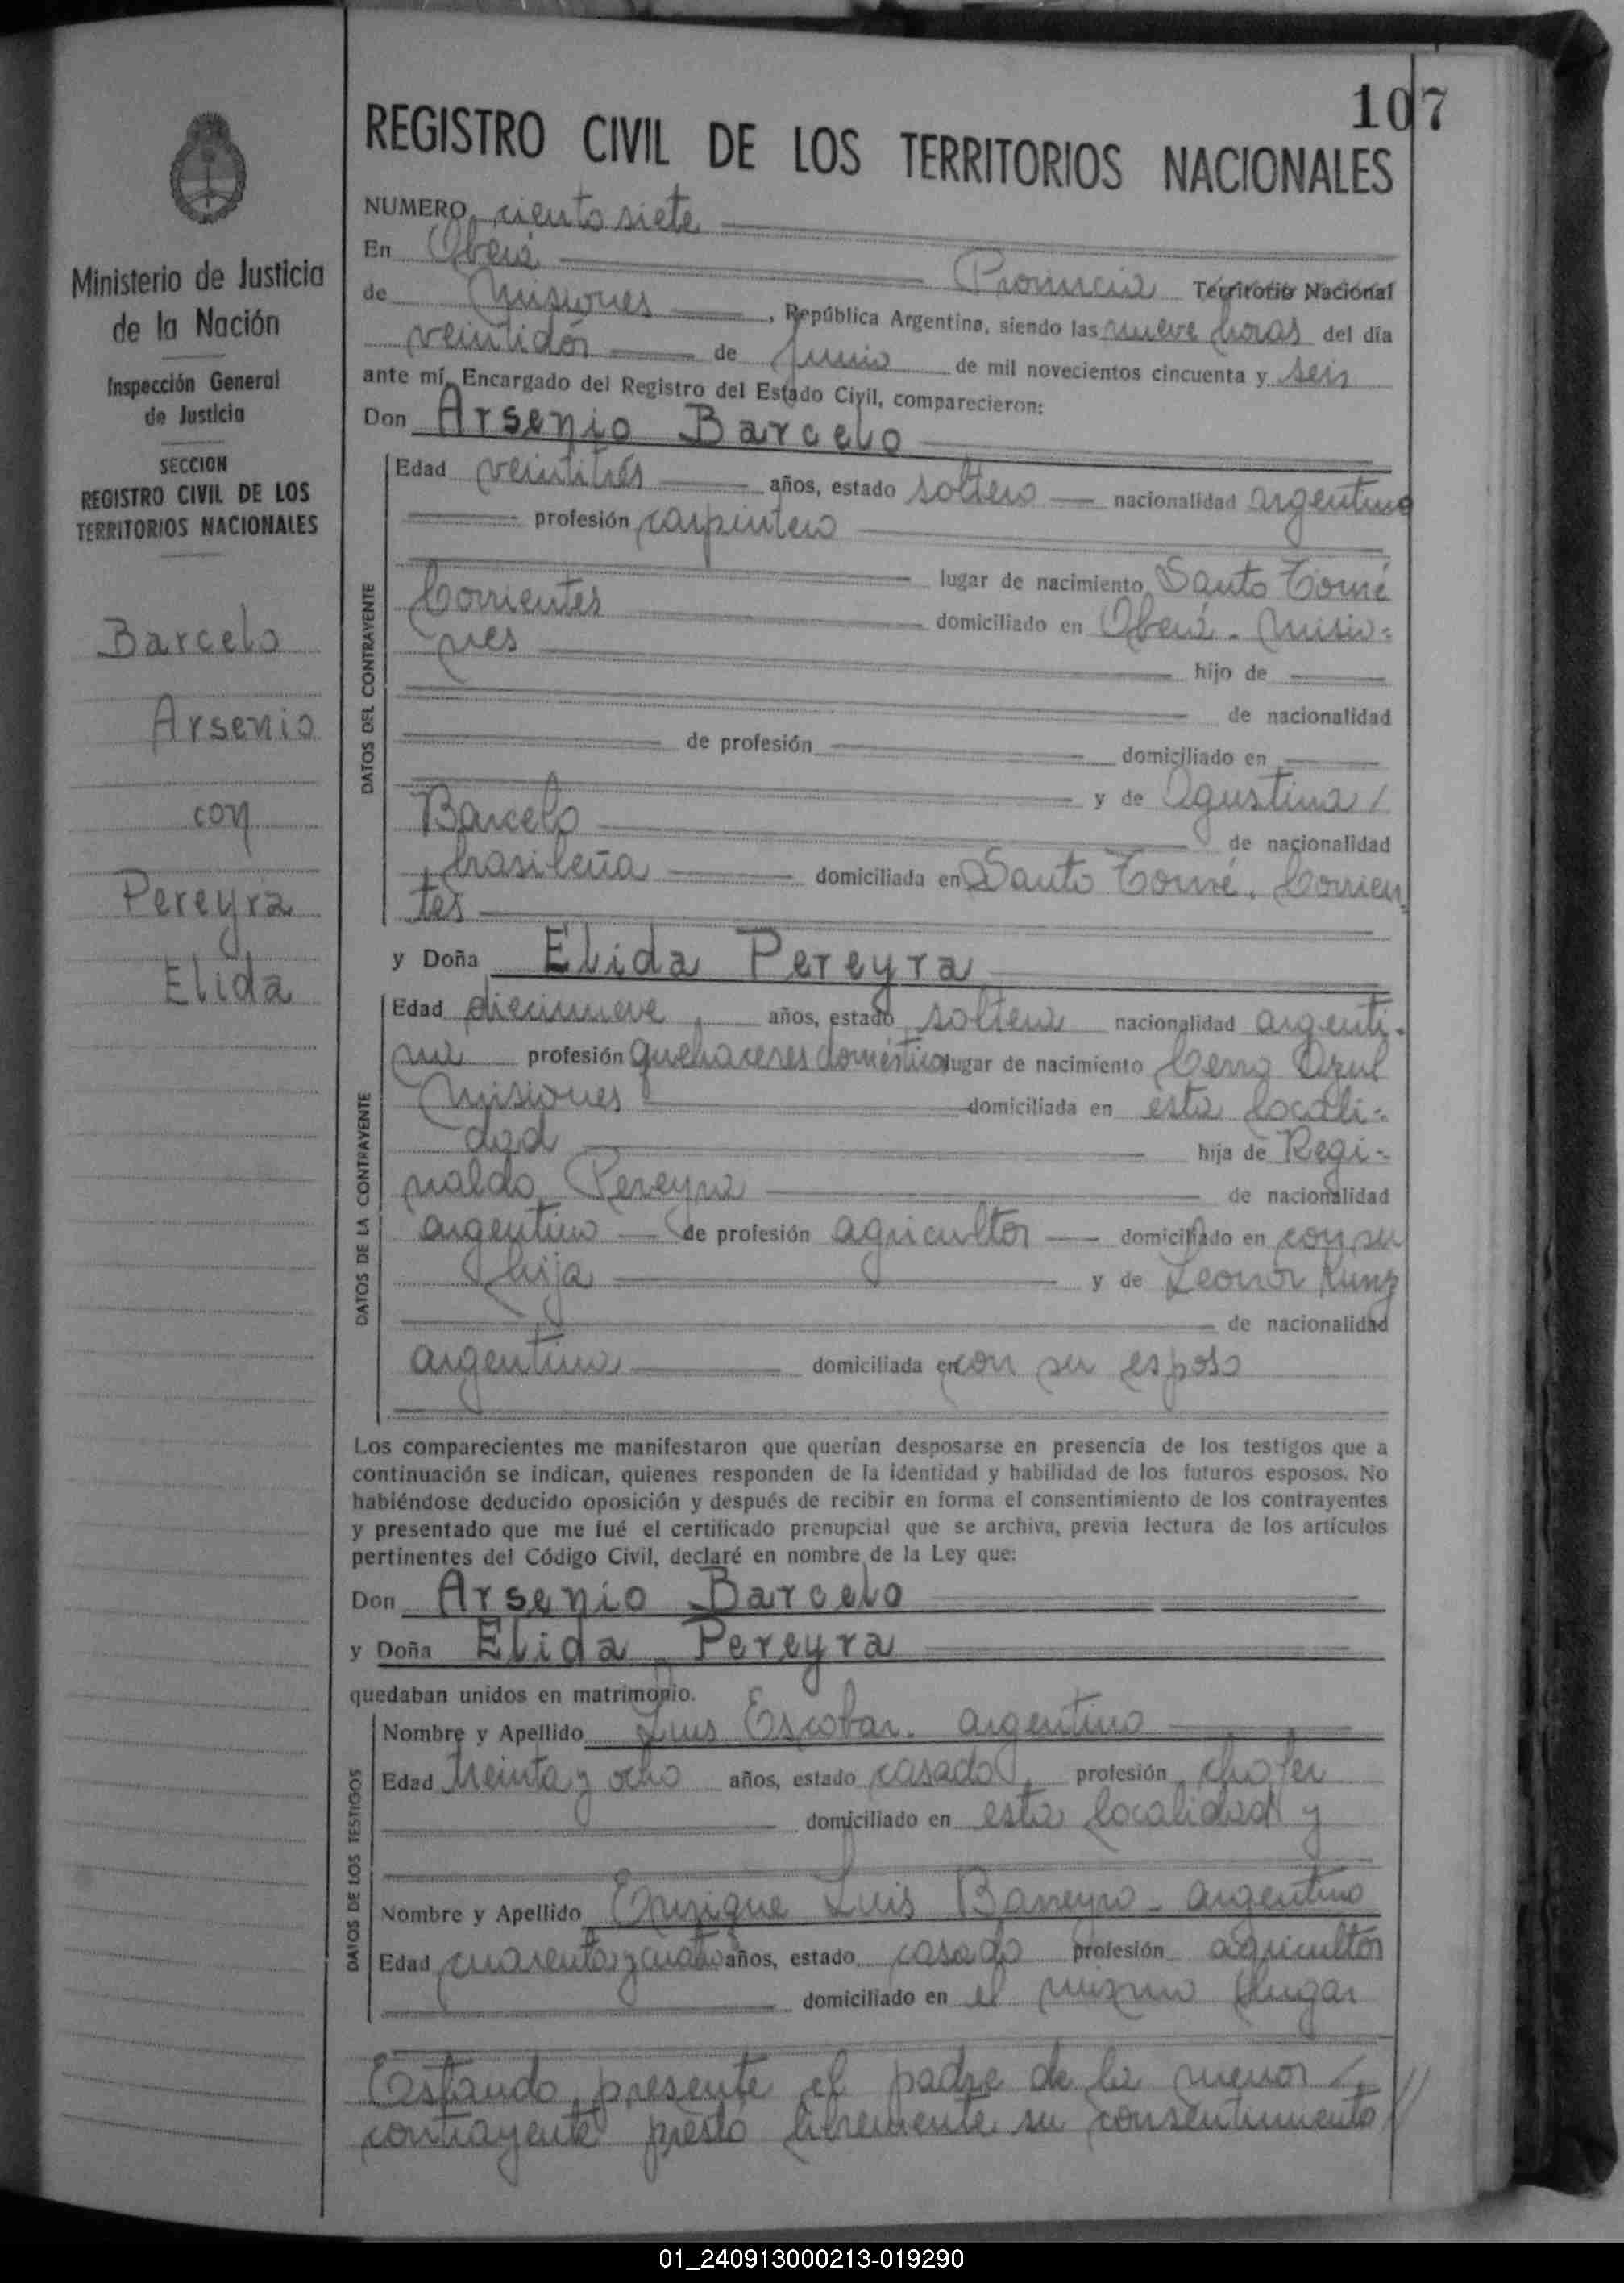 107
REGISTRO CIVIL DE LOS TERRITORIOS NACIONALES
Ministerio de Justicia
de la Nación
Inspección General
de Justicia
SECCION
REGISTRO CIVIL DE LOS
TERRITORIOS NACIONALES
Barcelo
Arsenio
con
Pereyra
Elida
NUMERO ciento siete
En Oberá Provincia Territorio Nacional
de Misiones, República Argentina, siendo las nueve horas del día
veintidós de junio de mil novecientos cincuenta y seis
ante mí, Encargado del Registro del Estado Civil, comparecieron:
Don Arsenio Barcelo
DATOS DEL CONTRAYENTE
Edad veintitrés años, estado soltero nacionalidad argentino
profesión carpintero
lugar de nacimiento Santo Tomé
Corrientes domiciliado en Oberá - Misio-
nes hijo de
de nacionalidad
de profesión domiciliado en
y de Agustina /
Barcelo de nacionalidad
brasileña domiciliada en Santo Tomé. Corrien-
tes
y Doña Elida Pereyra
DATOS DE LA CONTRAYENTE
Edad diecinueve años, estado soltera nacionalidad argenti-
na profesión quehaceres domésticos lugar de nacimiento Cerro Azul
Misiones domiciliada en esta locali-
dad hija de Regi-
naldo Pereyra de nacionalidad
argentino de profesión agricultor domiciliado en con su
hija y de Leonor Kunz
de nacionalidad
argentina domiciliada en con su esposo
Los comparecientes me manifestaron que querían desposarse en presencia de los testigos que a
continuación se indican, quienes responden de la identidad y habilidad de los futuros esposos. No
habiéndose deducido oposición y después de recibir en forma el consentimiento de los contrayentes
y presentado que me fué el certificado prenupcial que se archiva, previa lectura de los artículos
pertinentes del Código Civil, declaré en nombre de la Ley que:
Don Arsenio Barcelo
y Doña Elida Pereyra
quedaban unidos en matrimonio.
DATOS DE LOS TESTIGOS
Nombre y Apellido Luis Escobar. argentino
Edad treinta y ocho años, estado casado, profesión chofer
domiciliado en esta localidad y
Nombre y Apellido Enrique Luis Barreyro - argentino
Edad cuarenta y cuatro años, estado casado profesión agricultor
domiciliado en el mismo lugar
Estando presente el padre de la menor /
contrayente prestó libremente su consentimiento //
01_240913000213-019290